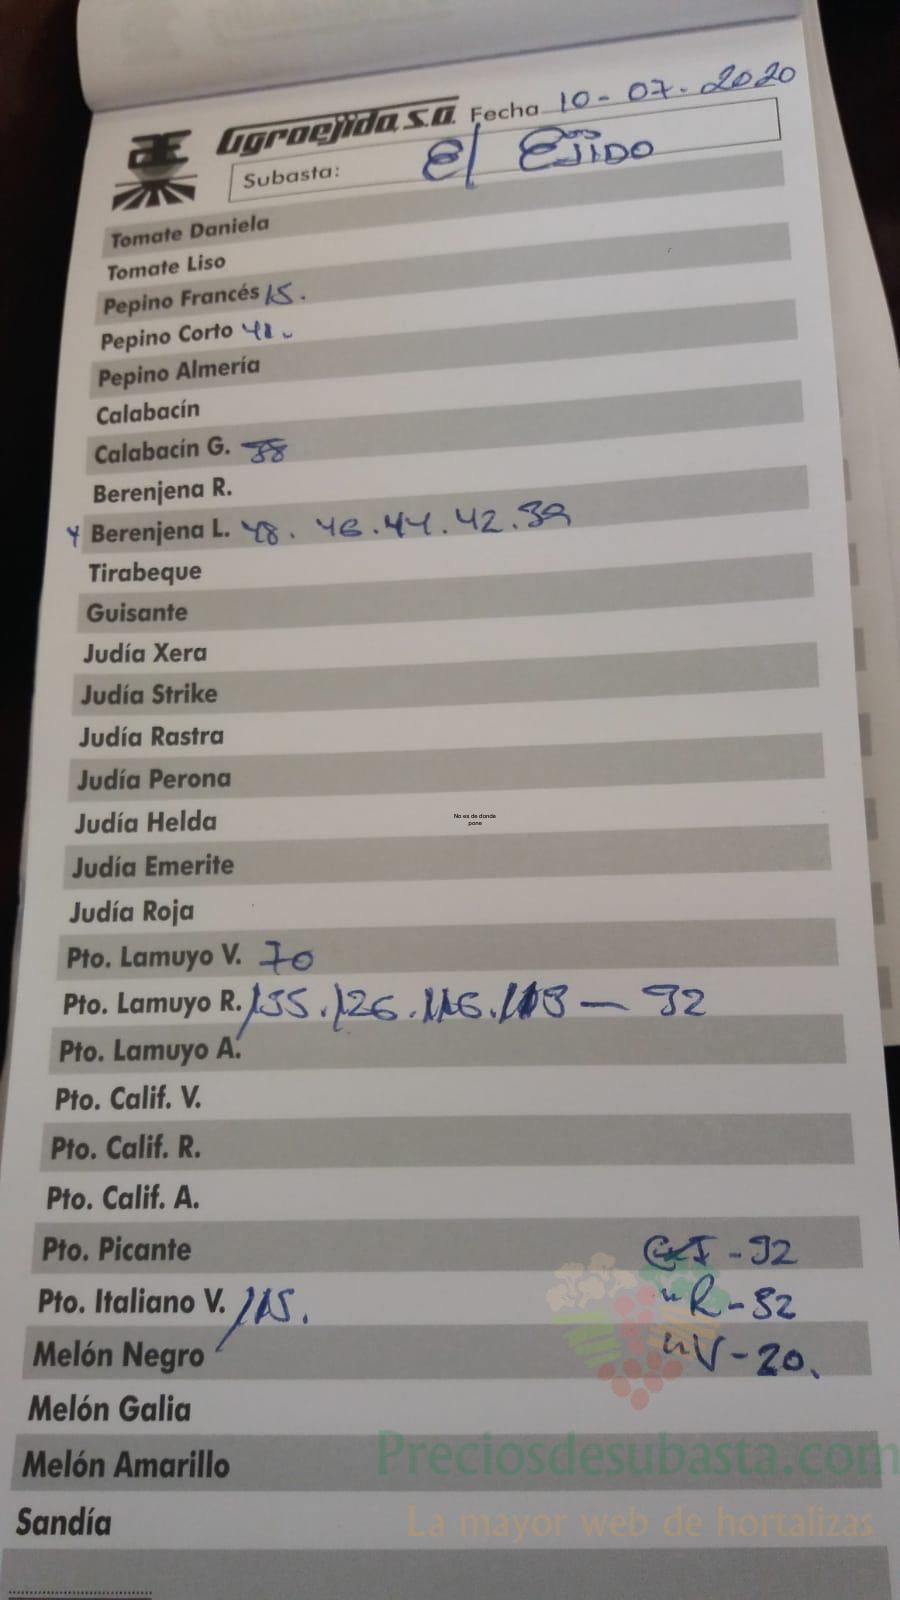 Agroejido, s.a. Fecha 10-07-2020
Subasta: El EJIDO
Tomate Daniela
Tomate Liso
Pepino Francés 15.
Pepino Corto 41.
Pepino Almería
Calabacín
Calabacín G. 38
Berenjena R.
Berenjena L. 48. 46. 44. 42. 39
Tirabeque
Guisante
Judía Xera
Judía Strike
Judía Rastra
Judía Perona
Judía Helda
No es de donde
pone
Judía Emerite
Judía Roja
Pto. Lamuyo V. 70
Pto. Lamuyo R. 135. 126. 116. — 92
Pto. Lamuyo A.
Pto. Calif. V.
Pto. Calif. R.
Pto. Calif. A.
Pto. Picante - 92
Pto. Italiano V. 115. " R - 32
Melón Negro " V - 20.
Melón Galia
Preciosdesubasta.com
Melón Amarillo
La mayor web de hortalizas
Sandía